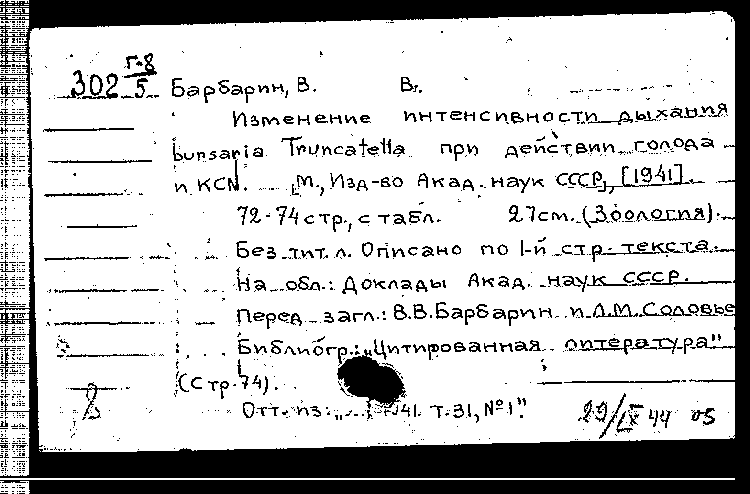 302 Г-8/5 Барбарин, В. В.
Изменение интенсивности дыхания
bursaria Truncatella при действии голода
и KCN. [М., Изд-во Акад. наук СССР], [1941].
72-74 стр., с табл. 27 см. (Зоология).
Без тит. л. Описано по 1-й стр. текста.
На обл.: Доклады Акад. наук СССР.
Перед загл.: В.В. Барбарин и Л.М. Соловье
Библиогр.: „Цитированная литература"
(Стр. 74).
Отт. из: „... 1941. т. 31, № 1".
29/IX 44 05